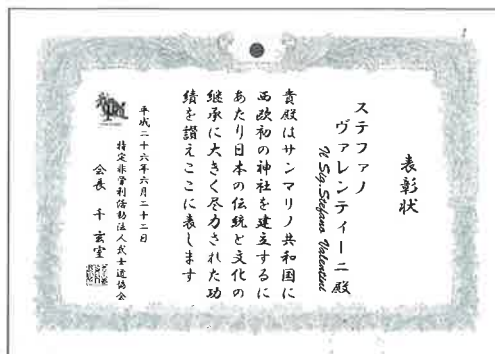 表彰状
ステファノ
ヴァレンティーニ殿
Il Sig. Stefano Valentini
貴殿はサンマリノ共和国に
西欧初の神社を建立するに
あたり日本の伝統と文化の
継承に大きく尽力された功
績を讃えここに表します
平成二十六年六月二十二日
特定非営利活動法人武士道協会
会長 千 玄室